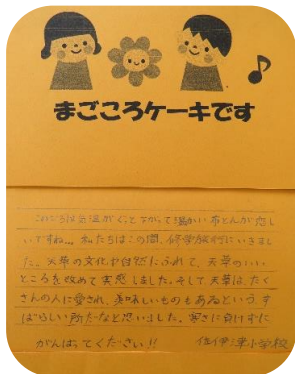 まごころケーキです
このごろは気温がぐっと下がって温かい布とんが恋し
いですね。私たちはこの間、修学旅行にいきまし
た。天草の文化や自然にふれて、天草のいい
ところを改めて実感しました。そして、天草は、たく
さんの人に愛され、美味しいものもあるというす
ばらしい所だなと思いました。寒さに負けずに
がんばってください!!
佐伊津小学校